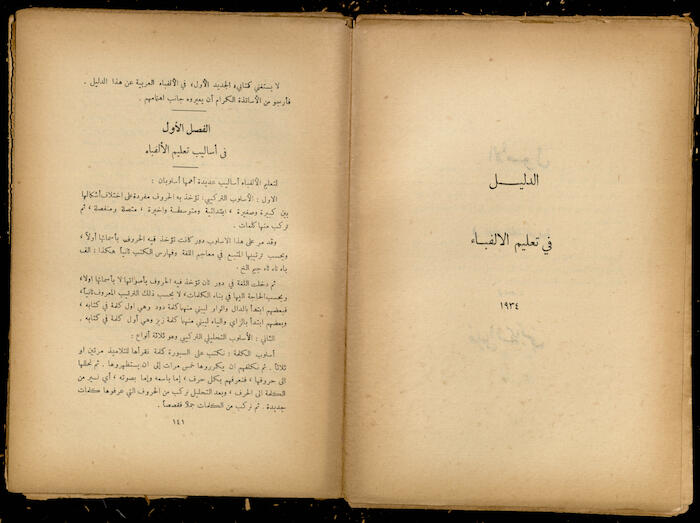 الدليل
في تعليم الالفباء
١٩٣٤
لا يستغني كتابي «الجديد الأول» في الألفباء العربية عن هذا الدليل .
فأرجو من الأساتذة الكرام أن يعيروه جانب اهتمامهم .
الفصل الأول
في أساليب تعليم الألفباء
لتعليم الألفباء أساليب عديدة أهمها أسلوبان :
الاول : الأسلوب التركيبي : تؤخذ به الحروف مفردة على اختلاف أشكالها
بين كبيرة وصغيرة ، ابتدائية ومتوسطة واخيرة ، متصلة ومنفصلة ، ثم
تركب منها كلمات .
وقد مر على هذا الاسلوب دور كانت تؤخذ فيه الحروف بأسمائها أولاً ،
وبحسب ترتيبها المتبع في معاجم اللغة وفهارس الكتب ثانياً هكذا : الف
باء تاء ثاء جيم الخ .
ثم دخلت اللغة في دور ثان تؤخذ فيه الحروف بأصواتها لا بأسمائها اولا ،
وبحسب الحاجة اليها في بناء الكلمات ، لا بحسب ذلك الترتيب المعروف ثانياً ،
فبعضهم ابتدأ بالدال والواو ليبني منهما كلمة دود وهي اول كلمة في كتابه ،
وبعضهم ابتدأ بالزاي والياء ليبني منهما كلمة زيز وهي أول كلمة في كتابه .
الثاني : الأسلوب التحليلي التركيبي وهو ثلاثة أنواع :
أسلوب الكلمة : نكتب على السبورة كلمة نقرأها للتلاميذ مرتين او
ثلاثاً . ثم نكلفهم ان يكرروها خمس مرات إلى ان يستظهروها . ثم نحللها
الى حروفها ، فنعرفهم بكل حرف ، إما باسمه وإما بصوته ، أي نسير من
الكلمة الى الحرف ، وبعد التحليل نركب من الحروف التي عرفوها كلمات
جديدة . ثم نركب من الكلمات جملاً فقصصاً .
١٤١